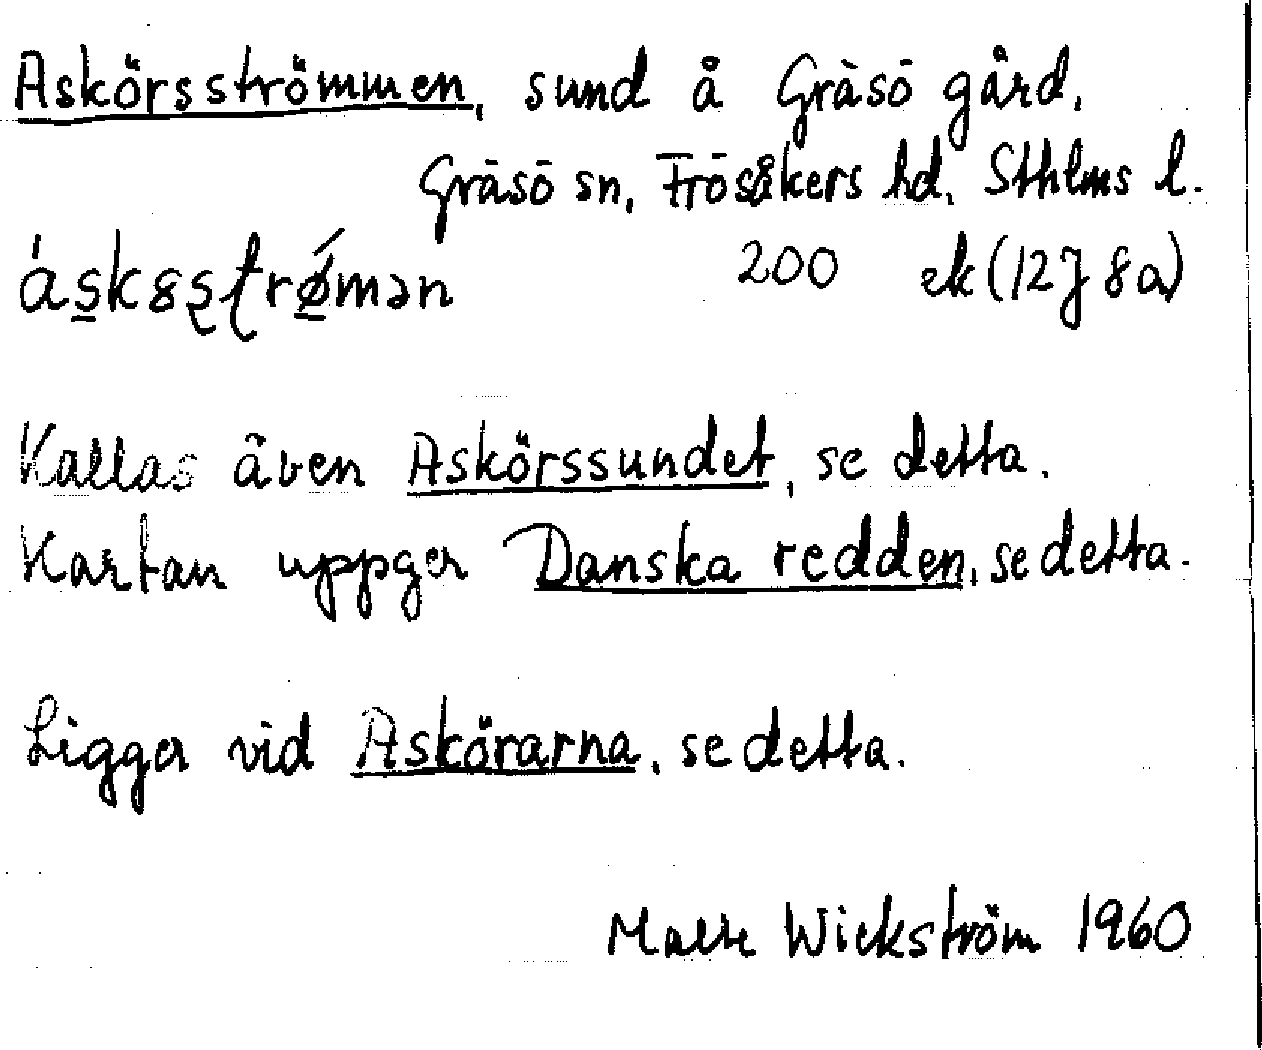 Askörsströmmen, sund å Gräsö gård,
Gräsö sn, Frösåkers hd, Sthlms l.
200 ek (12J 8a)
Kallas även Askörssundet, se detta.
Kartan uppger Danska redden, se detta.
Ligger vid Askörarna, se detta.
Malte Wickström 1960